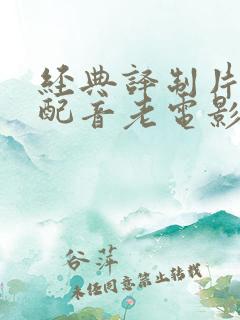 經典譯制片
配音老電影
谷萍
未经同意禁止转载